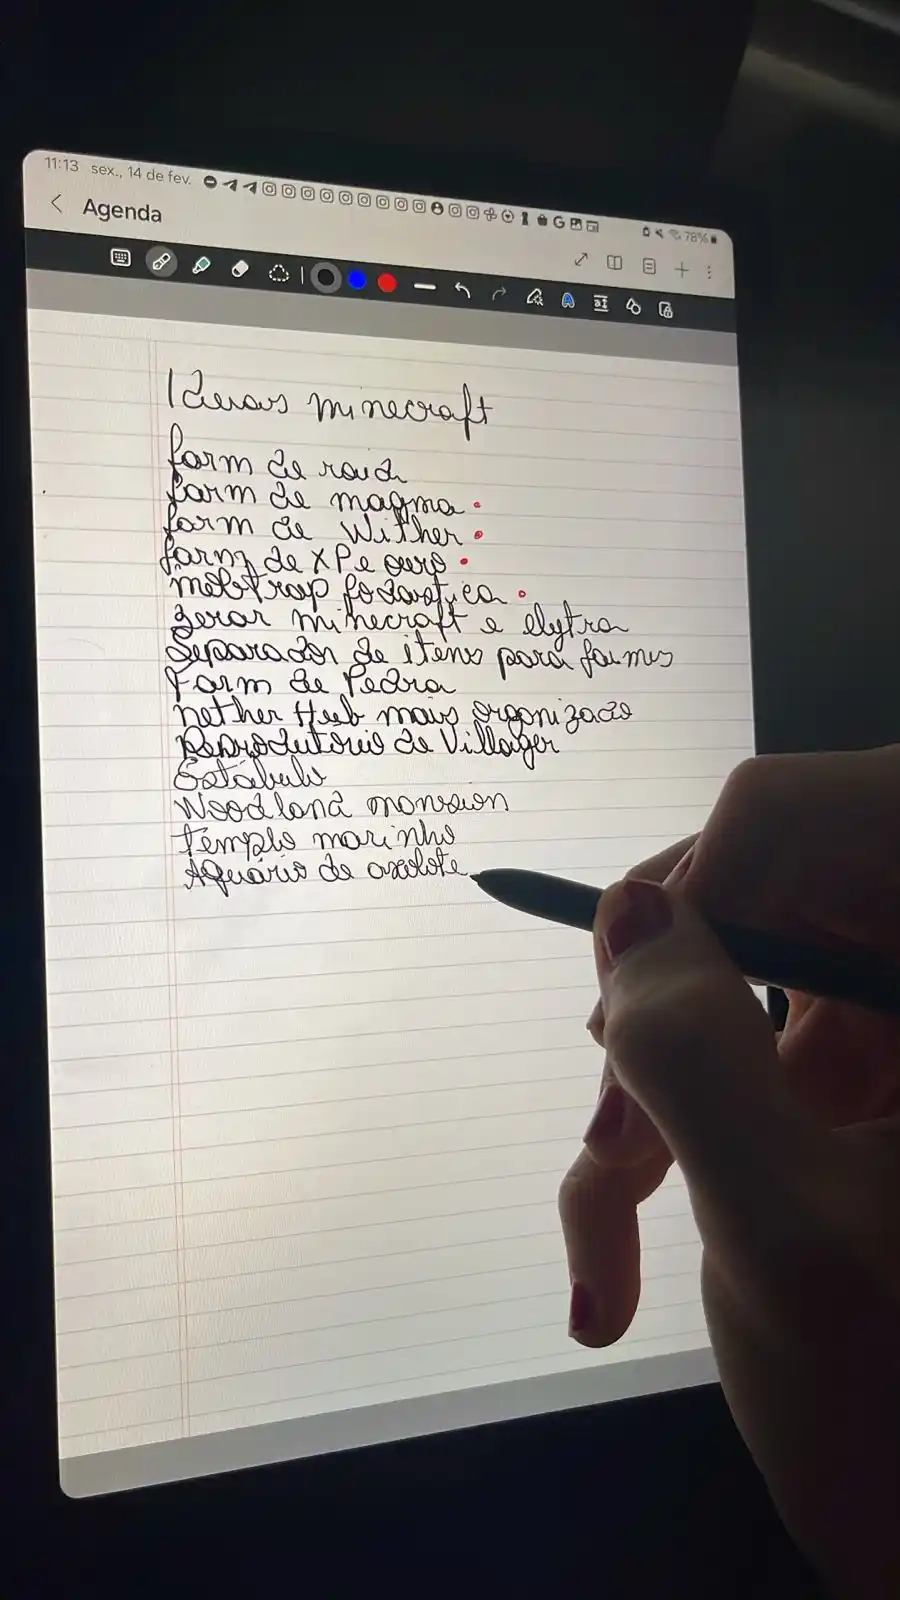 11:13 sex., 14 de fev.
78%
Agenda
Ideias minecraft
farm de raid
farm de magma
farm de Wither
farm de XP e ouro
mobtrap fodastica
zerar minecraft e elytra
Separador de itens para farms
Farm de Pedra
nether Hub mais organização
Reprodutorio de Villager
Estábulo
Woodland mansion
templo marinho
Aquário de axolote